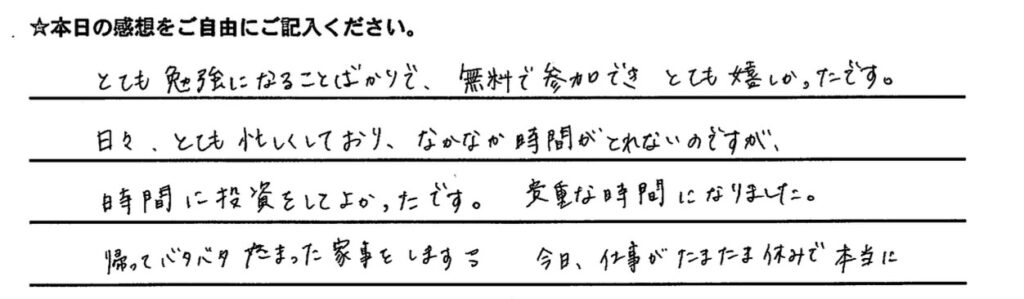 ☆本日の感想をご自由にご記入ください。
とても勉強になることばかりで、無料で参加でき とても嬉しかったです。
日々、とても忙しくしており、なかなか時間がとれないのですが、
時間に投資をしてよかったです。 貴重な時間になりました。
帰ってバタバタ 溜まった家事をします 今日、仕事がたまたま休みで本当に